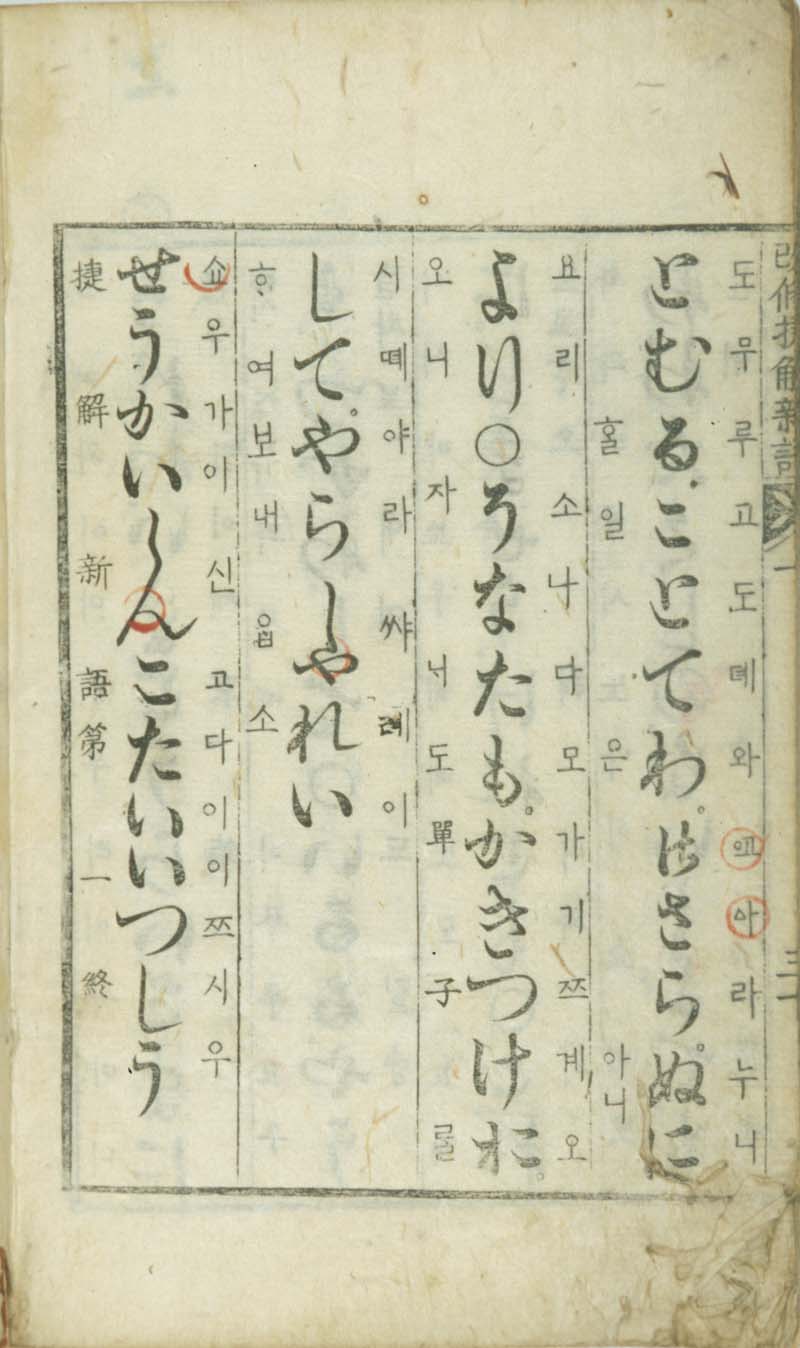 改修捷解新語 一
도무루고도뎨와예아라누니
とむることてわ。えさらぬ。に
홀 일 은 아니
요리 소나다모가기쯔계오
より○そなたも。かきつけお。
오니 자너도 單子 ᄅᆞᆯ
시뗴야라쌰례이
して。やらしやれい
ᄒᆞ여보내ᄋᆞᆸ소
쇼우가이신고다이이쯔시우
せうかいしんこたいいつしう
捷解新語第一終